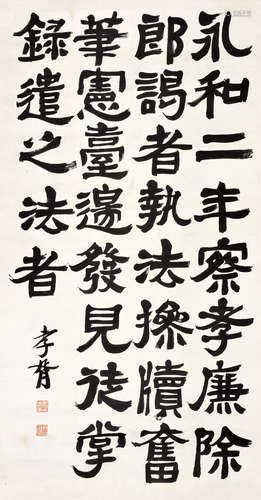 永和二年察孝廉除
郎謁者執法操牘奮
筆憲臺邊發見徒掌
錄遣之法者
孝胥